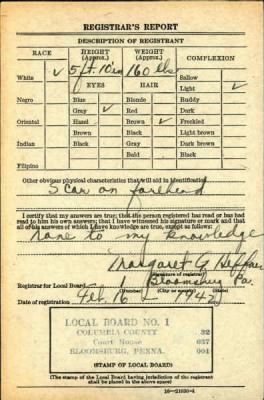 REGISTRAR'S REPORT
DESCRIPTION OF REGISTRANT
RACE HEIGHT (Approx.) WEIGHT (Approx.) COMPLEXION
✓ 5 ft. 10 in 160 lbs
White Sallow
EYES HAIR Light ✓
Negro Blue Blonde Ruddy
Gray ✓ Red Dark
Oriental Hazel Brown ✓ Freckled
Brown Black Light brown
Indian Black Gray Dark brown
Bald Black
Filipino
Other obvious physical characteristics that will aid in identification
Scar on forehead
I certify that my answers are true; that the person registered has read or has had
read to him his own answers; that I have witnessed his signature or mark and that
all of his answers of which I have knowledge are true, except as follows:
None to my knowledge
Margaret G
(Signature of registrar)
Registrar for Local Board 1 Bloomsburg Pa
(Number) (City or county) (State)
Date of registration Feb. 16 1942
LOCAL BOARD NO. 1
COLUMBIA COUNTY 32
Court House 037
BLOOMSBURG, PENNA. 001
(STAMP OF LOCAL BOARD)
(The stamp of the Local Board having jurisdiction of the registrant
shall be placed in the above space)